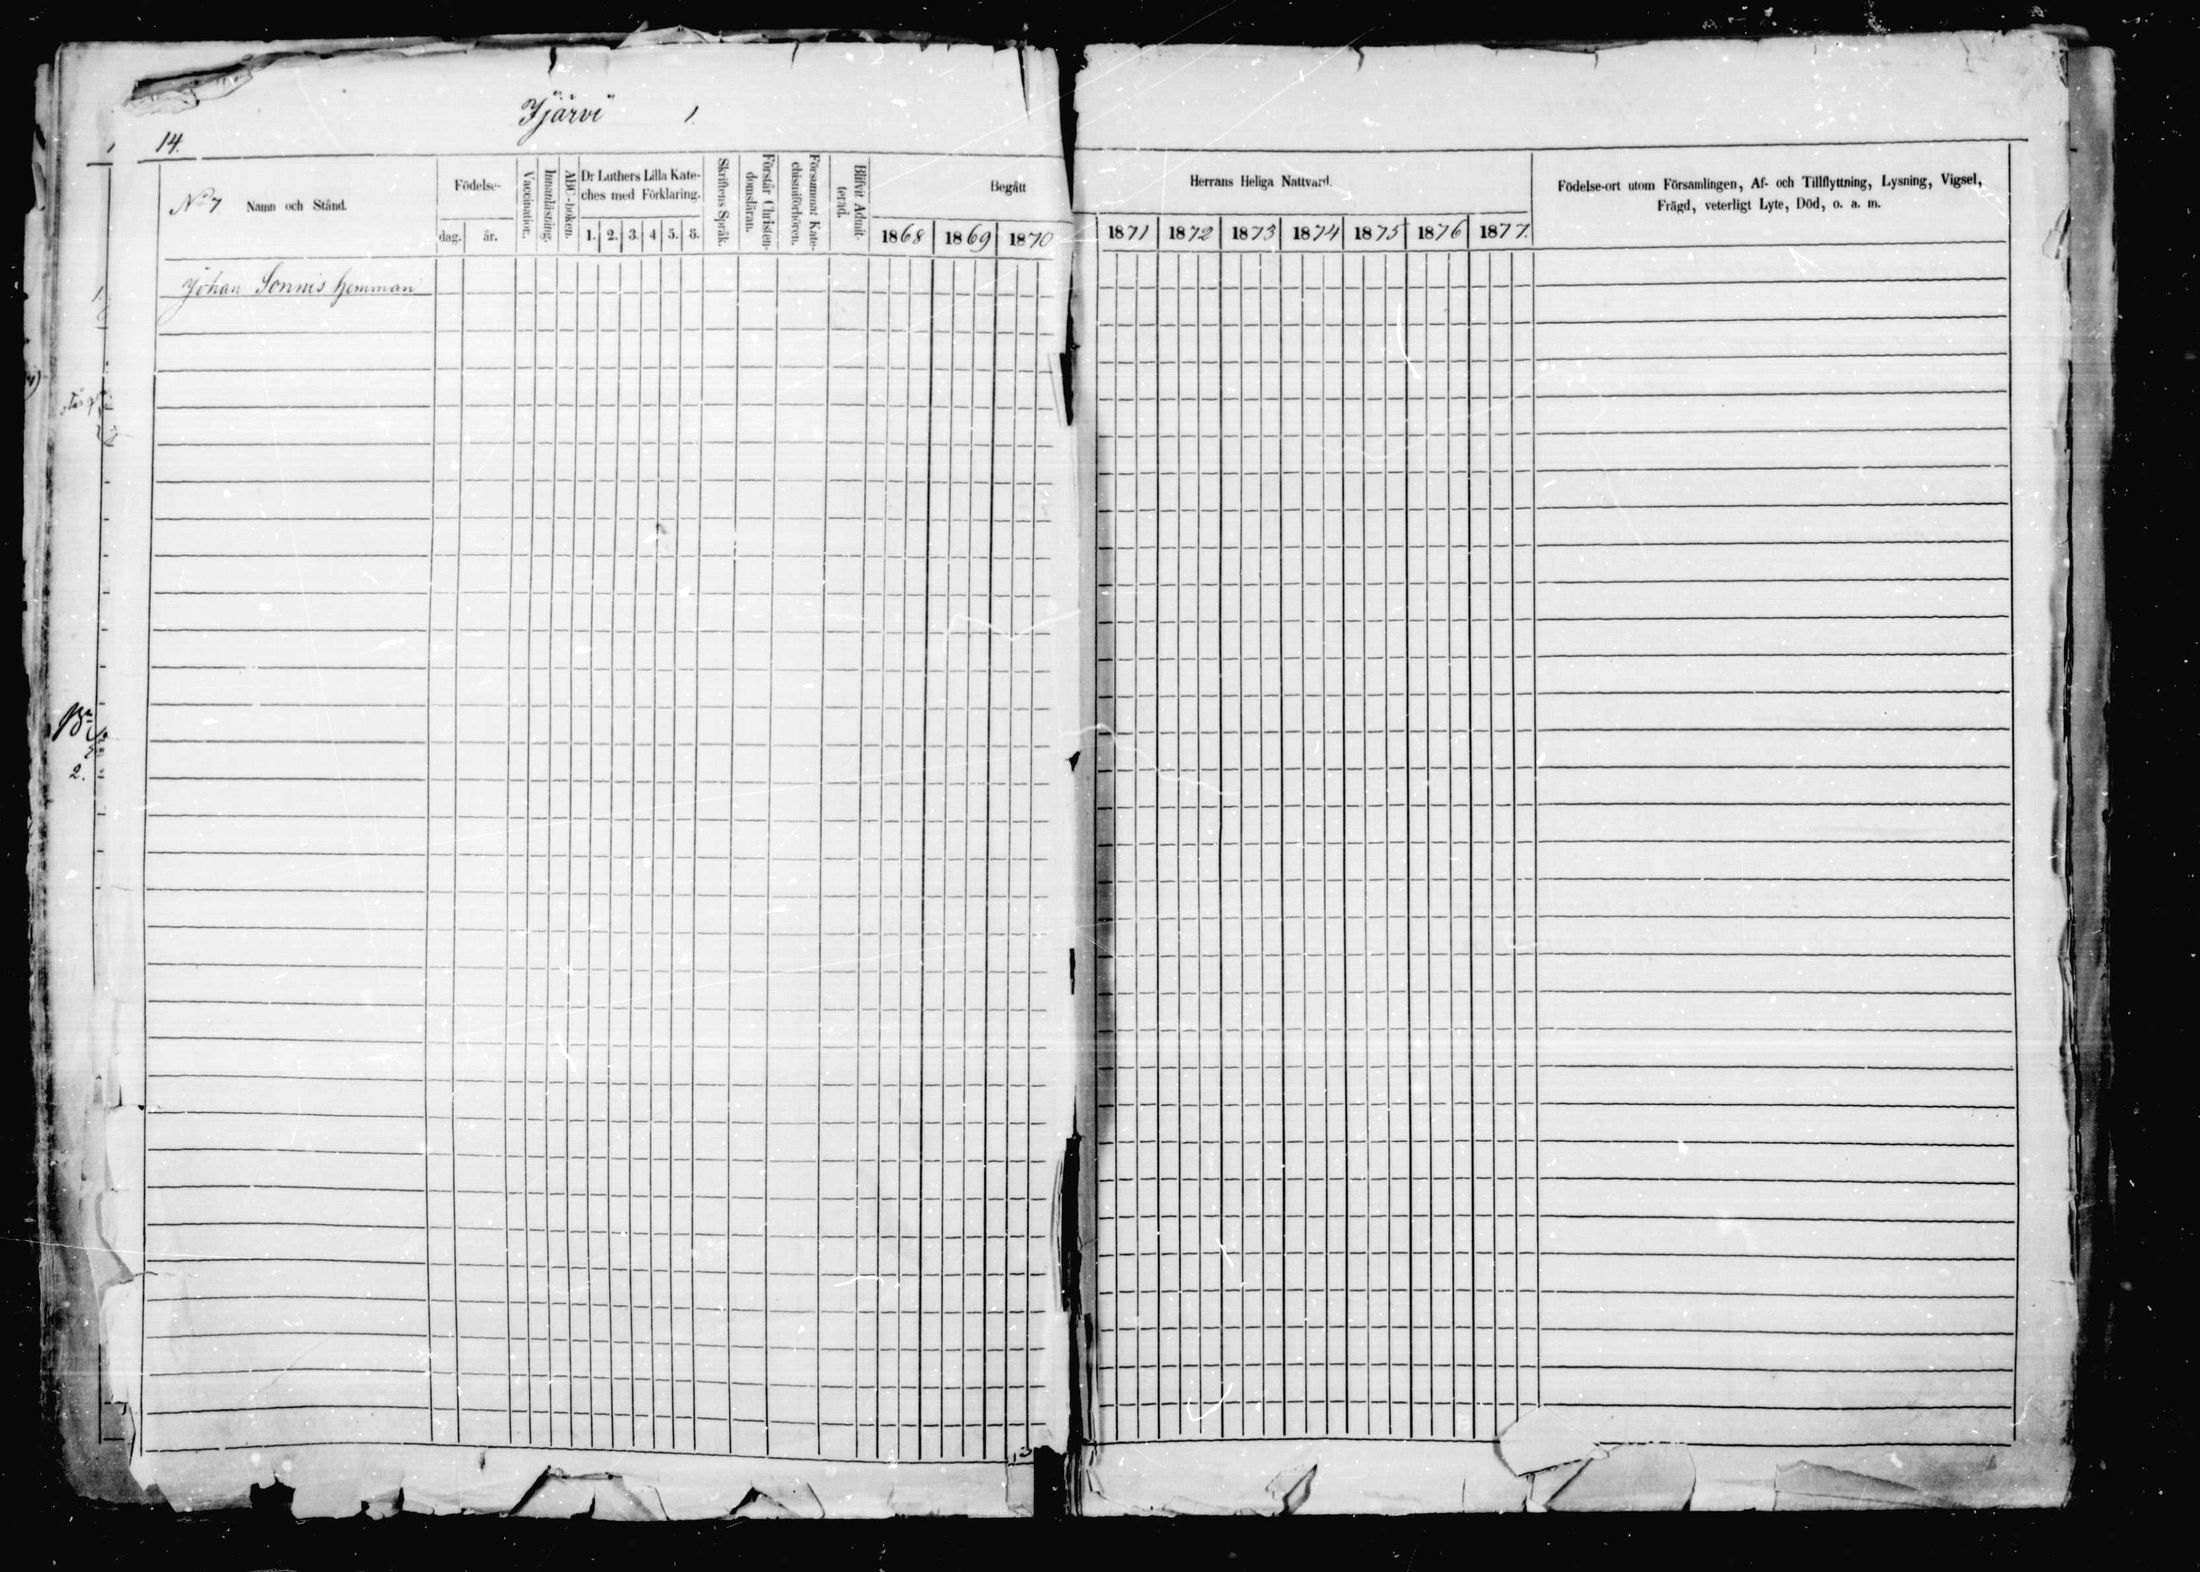 Yjärvi 1.
14.
No 7 Namn och Stånd.
Födelse-
dag. år.
Vaccination.
Innanläsning.
ABC-boken.
Dr Luthers Lilla Kate-
ches med Förklaring.
1. 2. 3. 4 5. 6.
Skriftens Språk.
Förstår Christen-
domsläran.
Försummat Kate-
chismiförhören.
Blifvit Admit-
terad.
Begått
1868 1869 1870
Herrans Heliga Nattvard.
1871 1872 1873 1874 1875 1876 1877.
Födelse-ort utom Församlingen, Af- och Tillflyttning, Lysning, Vigsel,
Frägd, veterligt Lyte, Död, o. a. m.
Johan Sonnis hemman
2.